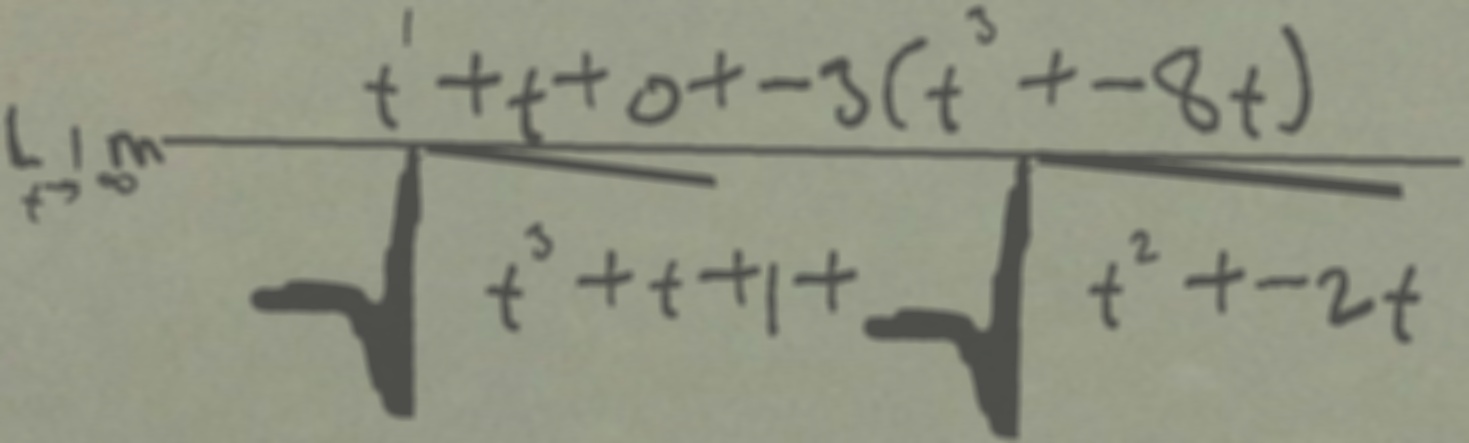 \lim_{t \to \infty} \frac{t^1 + t + 0 + -3(t^3 + -8t)}{\sqrt{t^3 + t + 1} + \sqrt{t^2 + -2t}}